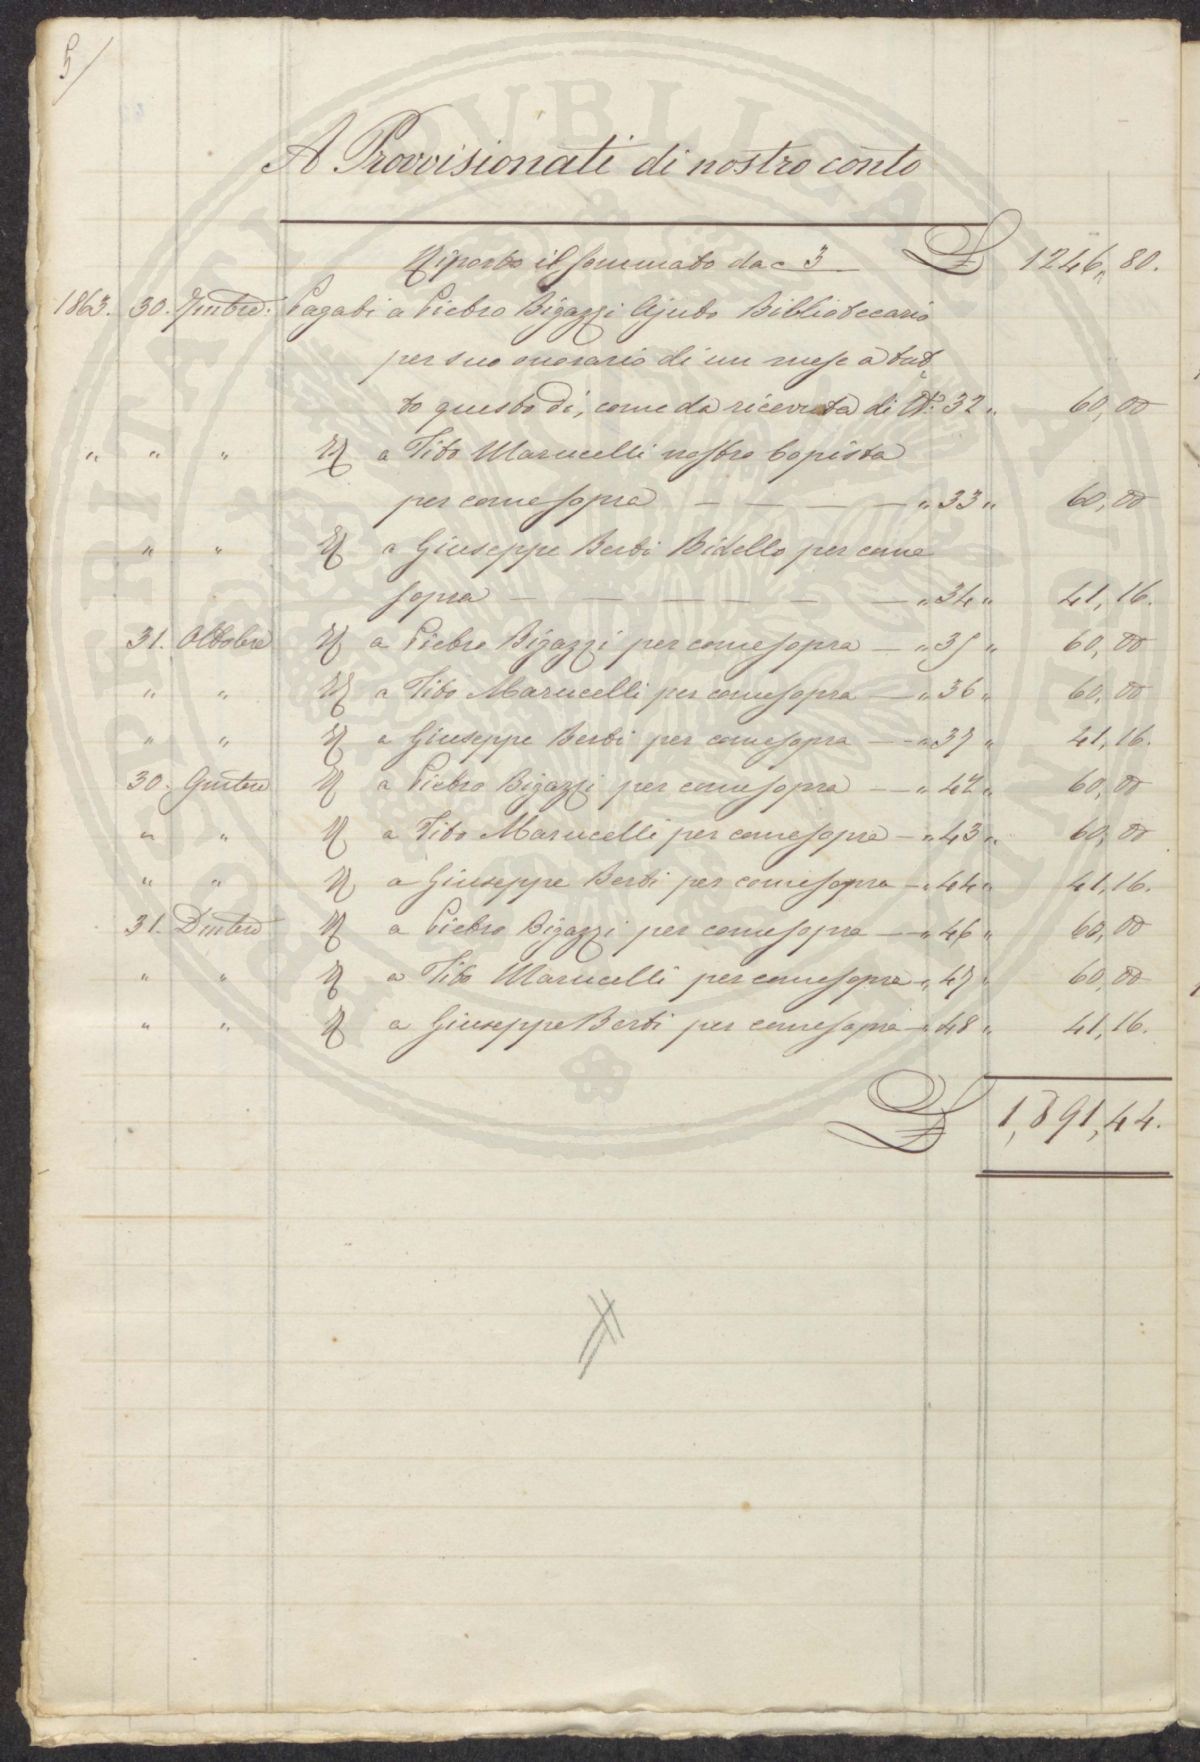 5
A Provvisionati di nostro conto
Riporto il sommato da c 3 £ 1246,, 80.
1863. 30. 7mbre: Pagati a Pietro Bigazzi Ajuto Bibliotecario
per suo onorario di un mese a tut„
to questo dì, come da ricevuta di N.° 32 „ 60, 00
„ „ „ Id a Tito Marucelli nostro Copista
per come sopra — — — — „ 33 „ 60, 00
„ „ Id a Giuseppe Berti Bidello per come
sopra — — — — — — „ 34 „ 41, 16.
31. Ottobre Id a Pietro Bigazzi per come sopra — „ 35 „ 60, 00
„ „ Id a Tito Marucelli per come sopra — „ 36 „ 60, 00
„ „ Id a Giuseppe Berti per come sopra — „ 37 „ 41, 16.
30. 9mbre Id a Pietro Bigazzi per come sopra — „ 42 „ 60, 00
„ „ Id a Tito Marucelli per come sopra — „ 43 „ 60, 00
„ „ Id a Giuseppe Berti per come sopra — „ 44 „ 41, 16.
31. Dmbre Id a Pietro Bigazzi per come sopra — „ 46 „ 60, 00
„ „ Id a Tito Marucelli per come sopra — „ 47 „ 60, 00
„ „ Id a Giuseppe Berti per come sopra — „ 48 „ 41, 16.
£ 1,891,44.